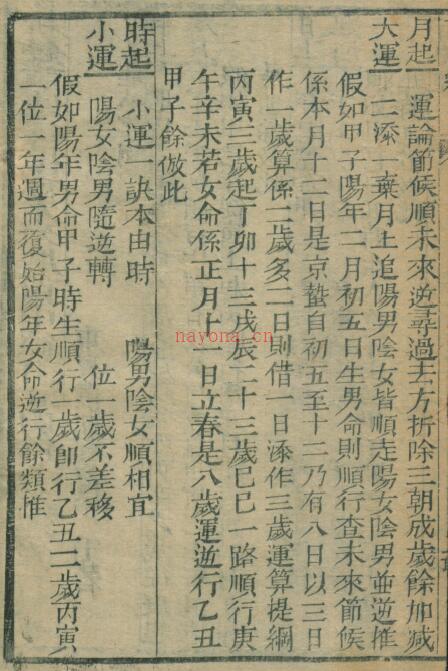 月起大運
一運論節候順未來逆尋過去方折除三朝成歲餘加減
二添一棄月上追陽男陰女皆順走陽女陰男並逆惟
假如甲子陽年二月初五日生男命則順行查未來節候
係本月十二日是京蟄自初五至十二乃有八日以三日
作一歲算係二歲多二日則借一日添作三歲運算提綱
丙寅三歲起丁卯十三戊辰二十三歲巳巳一路順行庚
午辛未若女命係正月十一日立春是八歲運逆行乙丑
甲子餘倣此
時起小運
小運一訣本由時 陽男陰女順相宜
陽女陰男隨逆轉 位一歲不差移
假如陽年男命甲子時生順行一歲卽行乙丑二歲丙寅
一位一年週而復始陽年女命逆行餘類惟
nayona.cn